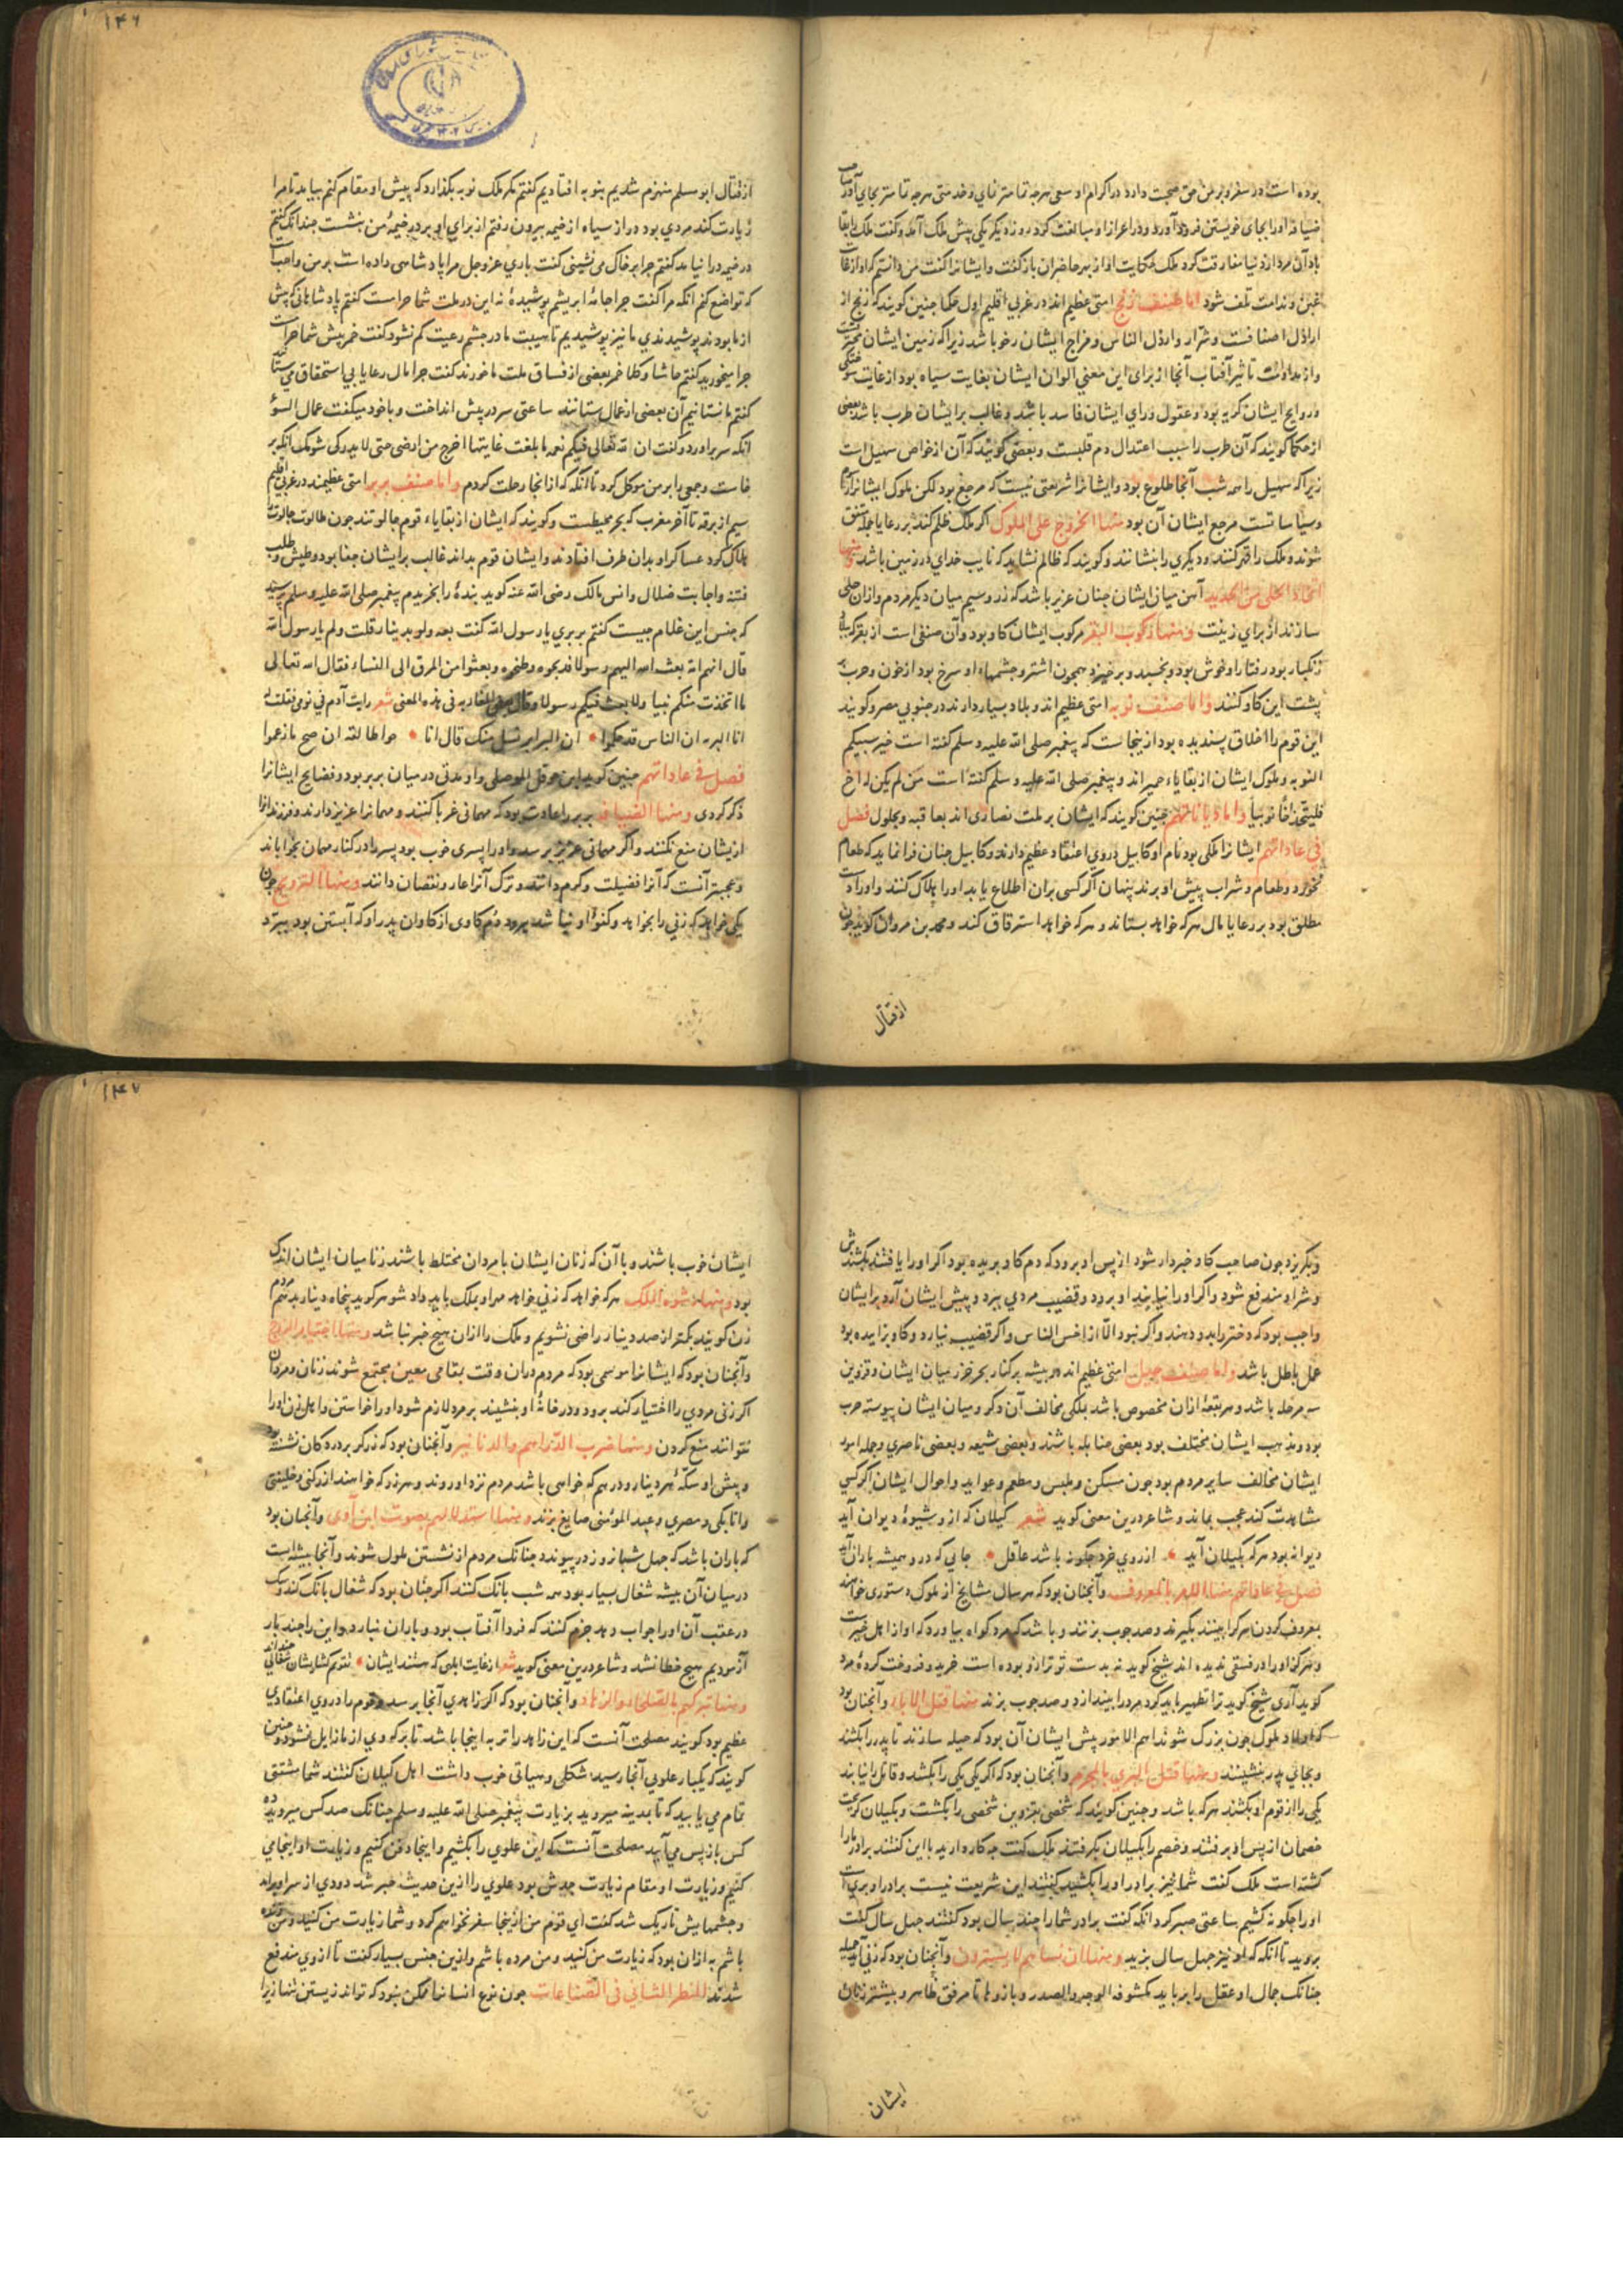 بوده است در سفر و بر من حق صحبت دارد در اکرام او سعی هرچه تمامتر نمای و خدمتی هرچه تمامتر بجای آور
ضیافه او را بجای خویشتن فرود آورد و در اعزاز او مبالغت کرد روزدیکر یکی پیش ملک آمد و کفت ملک را بقا
باد آن مرد از دنیا مفارقت کرد ملک حکایت او از بهر حاضران باز کفت و ایشانرا کفت من دانستم که او از غایت
غبن و ندامت تلف شود اما صنف زنج امتی عظیم اند در غربی اقلیم اول حکما جنین کویند که زنج از
اراذل اصنافست و شرار و ارذل الناس و مزاج ایشان رخو باشد زیرا که زمین ایشان
و از مداومت تاثیر آفتاب آنجا از برای این معنی الوان ایشان بغایت سیاه بود از غایت سوختکی
و روایح ایشان کریه بود و عقول و رای ایشان فاسد باشد و غالب بر ایشان طرب باشد بعضی
از حکما کویند که آن طرب را سبب اعتدال دم قلبست و بعضی کویند که آن از خواص سهیل است
زیرا که سهیل را همه شب آنجا طلوع بود و ایشانرا شریعتی نیست که مرجع بود لکن ملوک ایشانرا
و سیاساتست مرجع ایشان آن بود منها الخروج علی الملوک اکر ملک ظلم کند بر رعایا جمله متفق
شوند و ملک را قهر کنند و دیکری را بنشانند و کویند که ظالم نشاید که نایب خدای در زمین باشد و منها
اتخاذ الحلی من الحدید آهن میان ایشان جنان عزیز باشد که زر و سیم میان دیکر مردم و ازان حلی
سازند از برای زینت و منها رکوب البقر مرکوب ایشان کاو بود و آن صنفی است از بقر که
زنکبار بود رفتار او خوش بود و بخسبد و برخیزد همچون اشتر و جشمهاء او سرخ بود از خون و حرب بر
پشت این کاو کنند و اما صنف نوبه امتی عظیم اند و بلاد بسیار دارند در جنوبی مصر و کویند
این قوم را اخلاق پسندیده بود ازینجاست که پیغمبر صلی الله علیه و سلم کفته است خیر سبیکم
النوبه و ملوک ایشان از بقایاء حمیر اند و پیغمبر صلی الله علیه و سلم کفته است من لم یکن له اخ
فلیتخذ اخا نوبیا و اما دیاناتهم جنین کویند که ایشان بر ملت نصاری اند یعاقبه و بجلول فصل
فی عاداتهم ایشانرا ملکی بود نام او کابیل در وی اعتقاد عظیم دارند و کابیل جنان فرا نماید که طعام
نخورد و طعام و شراب پیش او برند پنهان اکر کسی بران اطلاع یابد او را هلاک کنند و او را دست
مطلق بود بر رعایا مال هر که خواهد بستاند و هر که خواهد استرقاق کند و محمد بن مروان کوید جون
از قتال
۱۴۶
از قتال ابو مسلم منهزم شدیم بنوبه افتادیم کفتم مکر ملک نوبه بکذارد که پیش او مقام کنم بیامد تا مرا
زیارت کند مردی بود دراز سیاه از خیمه بیرون رفتم از برای او بر در خیمهٔ من بنشست جندانک کفتم
در خیمه در آ نیامد کفتم جرا بر خاک می نشینی کفت باری عز و جل مرا پادشاهی داده است بر من واجبست
که تواضع کنم انکه مرا کفت جرا جامهٔ ابریشم پوشیدهٔ نه این در ملت شما حرامست کفتم پادشاهانی که پیش
از ما بودند پوشیدندی ما نیز پوشیدیم تا هیبت ما در جشم رعیت کم نشود کفت خمر پیش شما حرامست
جرا میخورید کفتم حاشا و کلا خمر بعضی از فساق ملت ما خورند کفت جرا مال رعایا بی استحقاق می ستانند
کفتم ما نستانیم آن بعضی از عمال ستانند ساعتی سر در پیش انداخت و با خود میکفت عمال السوء
انکه سر بر آورد و کفت ان لله تعالی فیکم نعمه ما بلغت غایتها اخرج من ارضی حتی لا یدرکی شومک انکه بر
خاست و جمعی را بر من موکل کرد تا آنکه که از انجا رحلت کردم و اما صنف بربر امتی عظیمند در غربی اقلیم
سیم از برقه تا آخر مغرب که بحر محیطست و کویند که ایشان از بقایاء قوم جالوتند جون طالوت جالوت را
هلاک کرد عساکر او بدان طرف افتادند و ایشان قوم بداند غالب بر ایشان جفا بود و طیش و طلب
فتنه و اجابت ضلال و انس مالک رضی الله عنه کوید بندهٔ را بخریدم پیغمبر صلی الله علیه و سلم پرسید
که جنس این غلام جیست کفتم بربری یا رسول الله کفت بعه ولو بدینار قلت و لم یا رسول الله
قال انهم امه بعث الله الیهم رسولا فذبحوه و طبخوه و بعثوا من المرق الی النساء فقال الله تعالی
ما اتخذت منکم نبیا ولا بعث فیکم رسولا و قال بعض المغاربه فی هذه المعنی شعر رایت آدم فی نومی فقلت له
انا البریه ان الناس قد حکموا • ان البرابر نسل منک قال انا • حوا طالقه ان صح ما زعموا
فصل فی عاداتهم جنین کوید ابن حوقل الموصلی و او مدتی در میان بربر بود و فضایح ایشانرا
ذکر کردی و منها الضیافه بربر را عادت بود که مهمانی غربا کنند و مهمانرا عزیز دارند و فرزند انرا
ازیشان منع نکنند و اکر مهمانی عزیز برسد و او را پسری خوب بود پسر را در کنار مهمان بخواباند
و عجبتر آنست که آنرا فضیلت و کرم دانند و ترک آنرا عار و نقصان دانند و منها التزویج جون
یکی خواهد که زنی را بخواهد و کفؤ او نباشد برود دم کاوی از کاوان پدر او که آبستن بود ببرد
و بکریزد جون صاحب کاو خبردار شود از پس او برود که دم کاو بریده بود اکر او را یافتند بکشندش
و شر او مندفع شود و اکر او را نیابند او برود و قضیب مردی ببرد و پیش ایشان آرد بر ایشان
واجب بود که دختر را بدو دهند و اکر نبود الا از اخس الناس و اکر قضیب نیارد و کاو بزاییده بود
عمل باطل باشد و اما صنف جیل امتی عظیم اند در بیشه بر کنار بحر خزر میان ایشان و قزوین
سه مرحله باشد و هر بقعهٔ ازان مخصوص باشد بملکی مخالف آن دکر و میان ایشان پیوسته حرب
بود و مذهب ایشان مختلف بود بعضی حنابله باشند و بعضی شیعه و بعضی ناصری و جمله امور
ایشان مخالف سایر مردم بود جون مسکن و ملبس و مطعم و عواید و احوال ایشان اکر کسی
مشاهدت کند عجب بماند و شاعر درین معنی کوید شعر کیلان که از و شیوهٔ دیوان آید
دیوانه بود هر که بکیلان آید • از روی خرد جکونه باشد عاقل • جایی که درو همیشه باران آید
فصل فی عاداتهم منها الامر بالمعروف و آنجنان بود که هر سال مشایخ از ملوک دستوری خواهند
بمعروف کردن هر کرا بینند بکیرند و صد جوب بزنند و باشد که مرد کواه بیاورد که او از اهل خیرست
و هرکز او را در فسقی ندیده اند شیخ کوید نه بدست تو ترازو بوده است خرید و فروخت کردهٔ مرد
کوید آری شیخ کوید ترا تطهیر باید کرد مرد را بیندازد و صد جوب بزند منها قتل الاباء و آنجنان بود
که اولاد ملوک جون بزرک شوند اهم الامور پیش ایشان آن بود که حیله سازند تا پدر را بکشند
و بجای پدر بنشینند و منها قتل البری بالمجرم و آنجنان بود که اکر یکی یکی را بکشد و قاتل را نیابند
یکی را از قوم او بکشند هر که باشد و جنین کویند که شخصی بقزوین شخصی را بکشت و بکیلان کریخت
خصمان از پس او برفتند و خصم را بکیلان بکرفتند ملک کفت جه کار دارید با این کفتند برادر ما را
کشته است ملک کفت شما نیز برادر او را بکشید کفتند این شریعت نیست برادر او بری است
او را جکونه کشیم ساعتی صبر کرد انکه کفت برادر شما را جند سال بود کفتند جهل سال کفت
بروید تا انکه که او نیز جهل سال بزید و منها ان نساءهم لا یستترن و آنجنان بود که زنی آید جمیله
جنانک جمال او عقل را برباید مکشوفه الوجه و الصدر و بازوها تا مرفق ظاهر و بیشتر زنان
ایشان
۱۴۷
ایشان خوب باشند و با آن که زنان ایشان با مردان مختلط باشند زنا میان ایشان اندک
بود و منها رشوه الملک هر که خواهد که زنی خواهد مر او بملک باید داد شوهر کوید پنجاه دینار بدهم مردم
زن کویند بکمتر از صد دینار راضی نشویم و ملک را ازان هیج خبر نباشد و منها اختیار الزوج
و آنجنان بود که ایشانرا موسمی بود که مردم دران وقت بمقامی معین مجتمع شوند زنان و مردان
اکر زنی مردی را اختیار کند برود و در خانهٔ او بنشیند بر مرد لازم شود او را خواستن و اهل زن او را
نتوانند منع کردن و منها ضرب الدراهم و الدنانیر و آنجنان بود که زرکر بر در دکان نشسته
و پیش او سکهٔ هر دینار و درهم که خواهی باشد مردم نزد او روند و هر زر که خواهند از رکنی و خلیفتی
و اتابکی و مصری و عبد المؤمنی صایغ بزند و منها استدلالهم بصوت ابن آوی و آنجنان بود
که باران باشد که جهل شبانروز در پیوندد جنانک مردم از نشستن ملول شوند و آنجا بیشه است
در میان آن بیشه شغال بسیار بود همه شب بانک کنند اکر جنان بود که شغال بانک کند و سک
در عقب آن او را جواب دهد جزم کنند که فردا آفتاب بود و باران نبارد و این را جند بار
آزمودیم هیج خطا نشد و شاعر درین معنی کوید شعر از غایت ابلهی که هستند ایشان • تقویم کشایشان شغالی
و منها تبرکهم بالصلحاء و الزهاد و آنجنان بود که اکر زاهدی آنجا برسد و قوم را در وی اعتقادی
عظیم بود کویند مصلحت آنست که این زاهد را تربه اینجا باشد تا برکه وی از ما زایل نشود و جنین
کویند که یکبار علویی آنجا رسید شکلی و هیاتی خوب داشت اهل کیلان کفتند شما مشقتی
تمام می یابید که تا مدینه میروید بزیارت پیغمبر صلی الله علیه و سلم جنانک صد کس میروید ده
کس باز پس می آید مصلحت آنست که این علوی را بکشیم و اینجا دفن کنیم و زیارت او اینجا می
کنیم و زیارت او مقام زیارت جدش بود علوی را ازین حدیث خبر شد دودی از سر او برآمد
و جشمهایش تاریک شد کفت ای قوم من ازینجا سفر نخواهم کرد و شما زیارت من کنید و من زنده
باشم به ازان بود که زیارت من کنید و من مرده باشم و ازین جنس بسیار کفت تا از وی مندفع
شدند النظر الثانی فی الصناعات جون نوع انسانرا ممکن نبود که تواند زیستن تنها زیرا